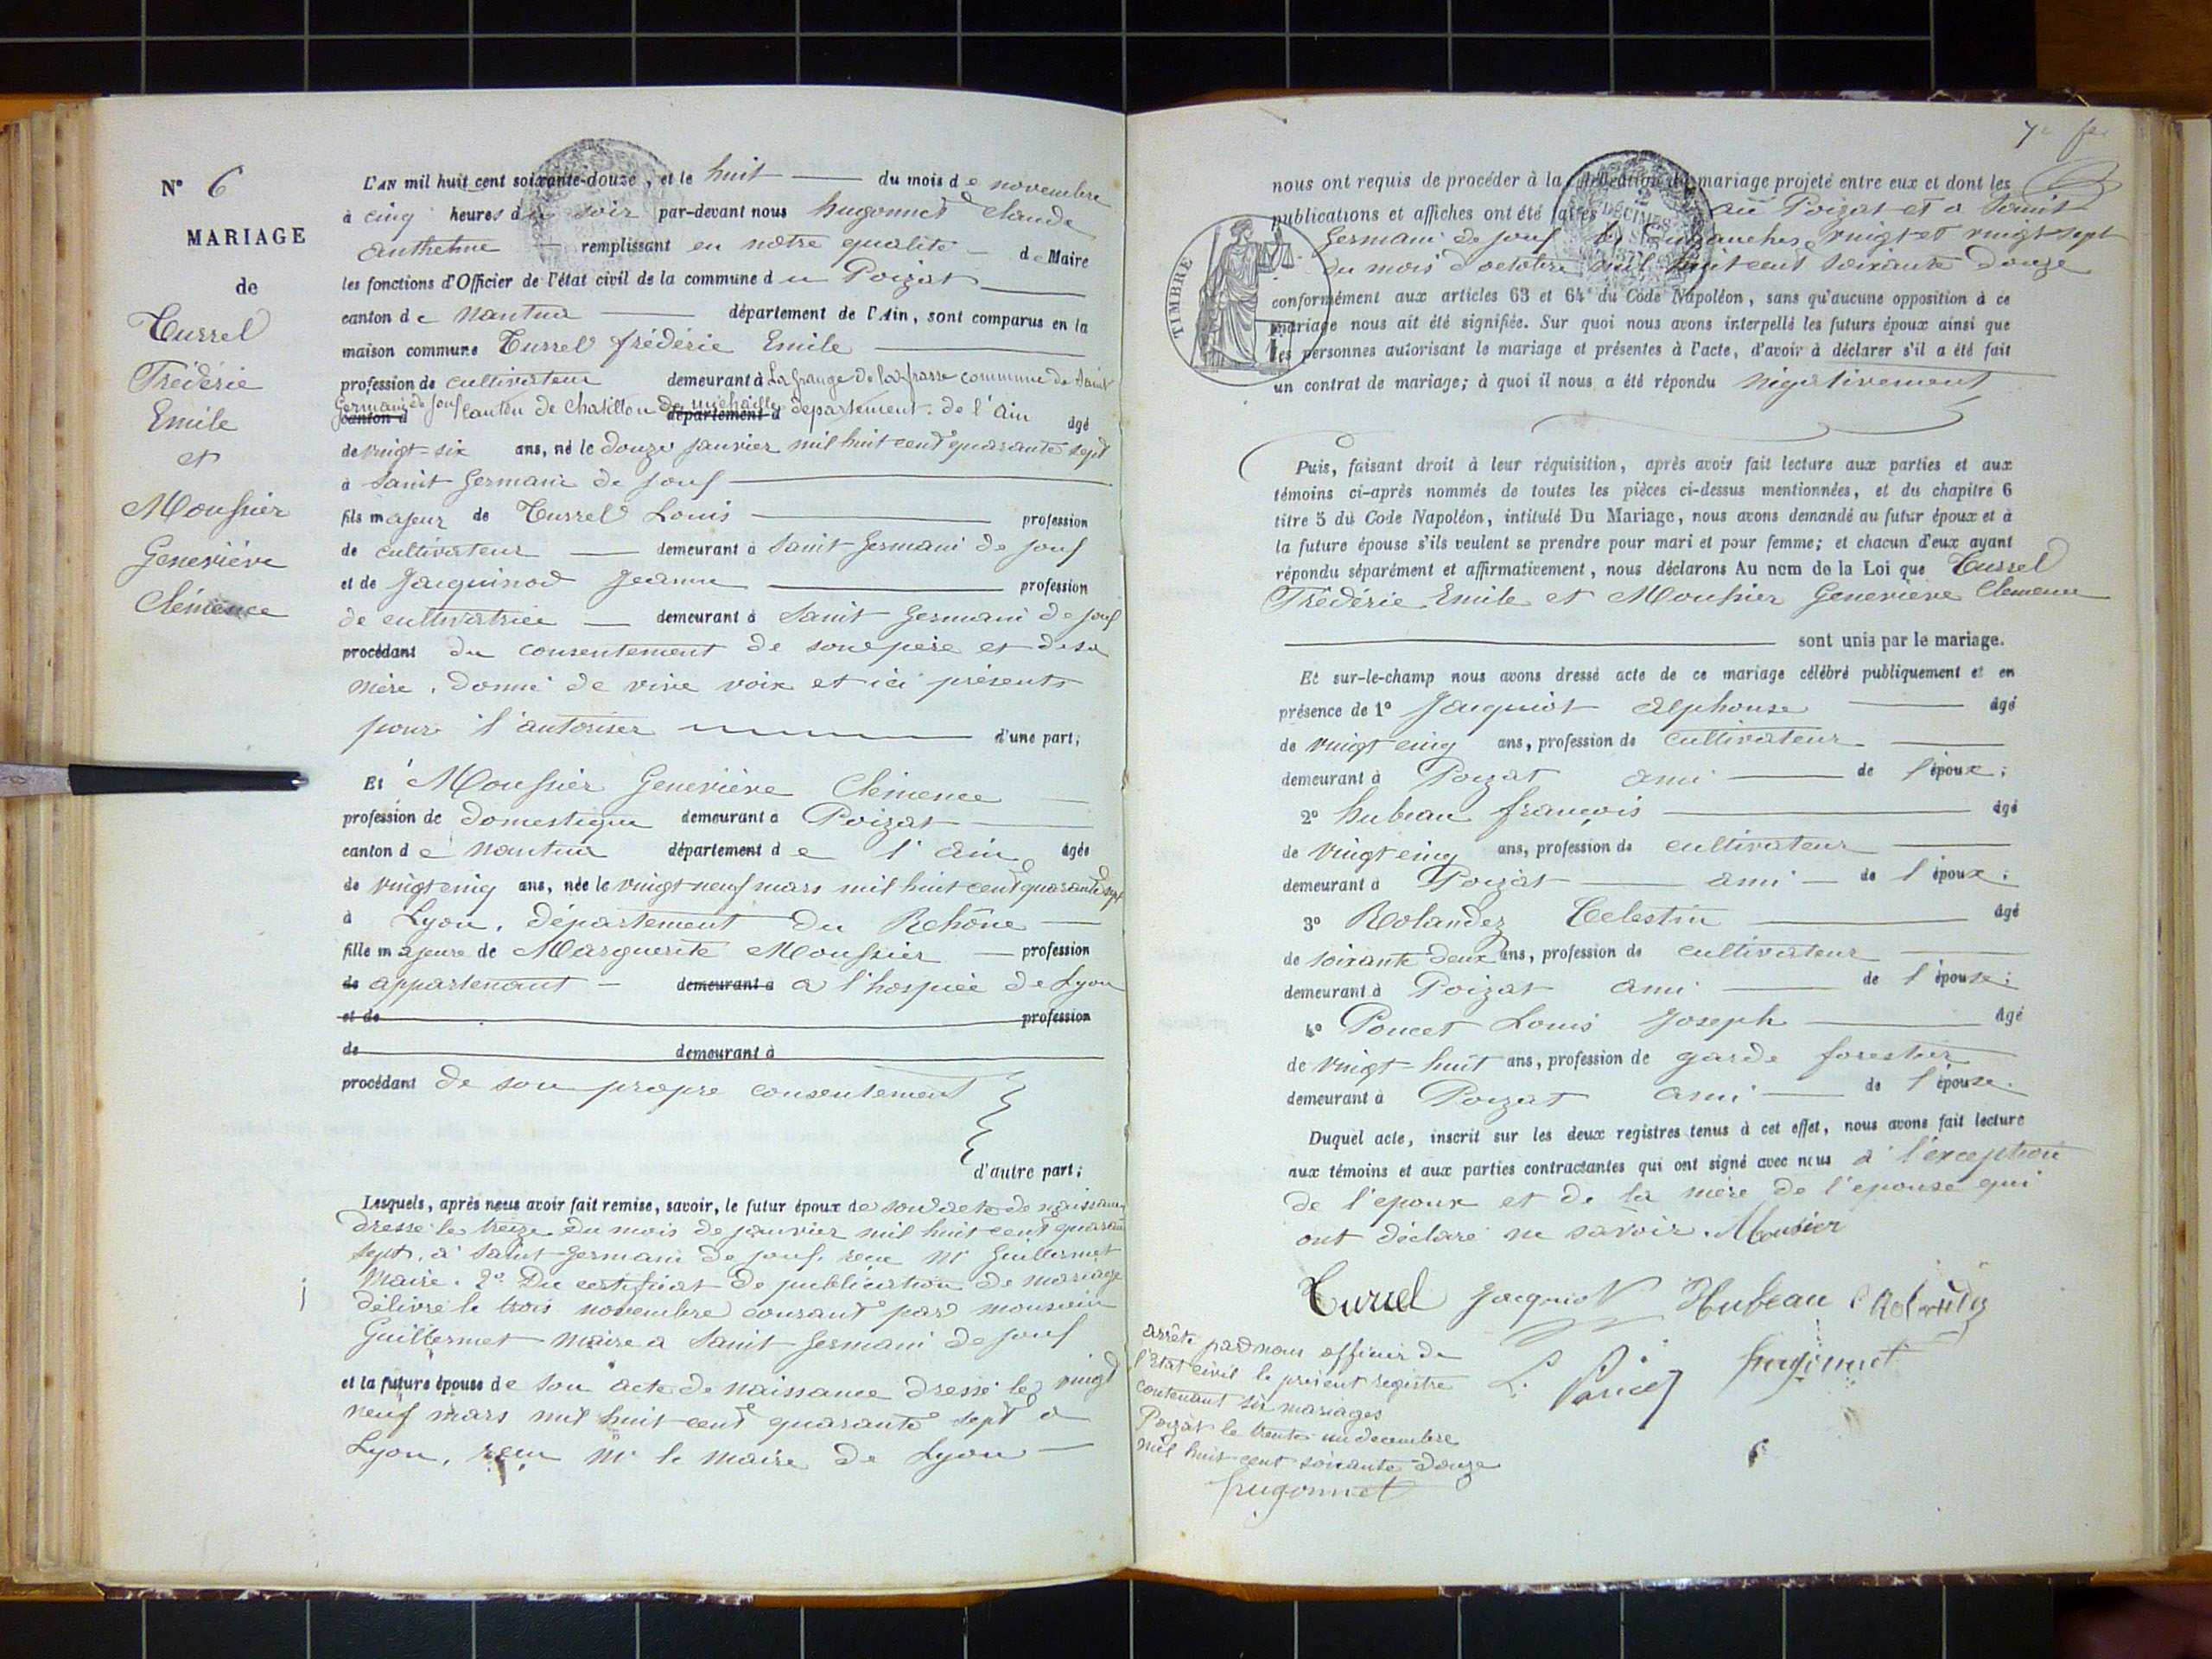 N° 6
MARIAGE
de
Turrel
Frédéric
Emile
et
Moussier
Geneviève
Clémence
L'AN mil huit cent soixante-douze, et le huit du mois de novembre
à cinq heures du soir par-devant nous hugonnet Claude
Anthelme remplissant en notre qualité de Maire
les fonctions d'Officier de l'état civil de la commune du Poizat
canton de Nantua département de l'Ain, sont comparus en la
maison commune Turrel frédéric Emile
profession de cultivateur demeurant à La grange de la frasse commune de Saint
Germain de Joux Canton de Chatillon de michaille département de l'Ain âgé
canton d département d
de vingt-six ans, né le douze janvier mil huit cent quarante sept
à Saint Germain de Joux
fils majeur de Turrel Louis profession
de cultivateur demeurant à Saint Germain de joux
et de Jacquinod Jeanne profession
de cultivatrice demeurant à Saint Germain de joux
procédant du consentement de son père et de sa
mère, donné de vive voix et ici présents
pour l'autoriser d'une part;
Et Moussier Geneviève Clémence
profession de domestique demeurant à Poizat
canton de Nantua département de l'Ain âgée
de vingt cinq ans, née le vingt neuf mars mil huit cent quarante sept
à Lyon, département du Rhône
fille majeure de Marguerite Moussier profession
de appartenant demeurant à a l'hospice de Lyon
et de profession
de demeurant à
procédant de son propre consentement
d'autre part;
Lesquels, après nous avoir fait remise, savoir, le futur époux de son acte de naissance
dressé le treize du mois de janvier mil huit cent quarante
sept, à Saint-Germain de joux, reçu Mr Guillermet
Maire. 2° Du certificat de publication de mariage
délivré le trois novembre courant par monsieur
Guillermet maire a Saint Germain de joux
et la future épouse de son acte de naissance dressé le vingt
neuf mars mil huit cent quarante sept a
Lyon, reçu Mr le Maire de Lyon
nous ont requis de procéder à la célébration du mariage projeté entre eux et dont les
publications et affiches ont été faites au Poizat et a Saint
Germain de joux les Dimanches vingt et vingt sept
du mois d'octobre mil huit cent soixante douze
conformément aux articles 63 et 64 du Code Napoléon, sans qu'aucune opposition à ce
mariage nous ait été signifiée. Sur quoi nous avons interpellé les futurs époux ainsi que
les personnes autorisant le mariage et présentes à l'acte, d'avoir à déclarer s'il a été fait
un contrat de mariage; à quoi il nous a été répondu négativement
TIMBRE
2
DÉCIMES
Puis, faisant droit à leur réquisition, après avoir fait lecture aux parties et aux
témoins ci-après nommés de toutes les pièces ci-dessus mentionnées, et du chapitre 6
titre 5 du Code Napoléon, intitulé Du Mariage, nous avons demandé au futur époux et à
la future épouse s'ils veulent se prendre pour mari et pour femme; et chacun d'eux ayant
répondu séparément et affirmativement, nous déclarons Au nom de la Loi que Turrel
Frédéric Emile et Moussier Geneviève Clemence
sont unis par le mariage.
Et sur-le-champ nous avons dressé acte de ce mariage célébré publiquement et en
présence de 1° Jacquiot Alphonse âgé
de vingt cinq ans, profession de cultivateur
demeurant à Poizat ami de l'époux;
2° hubeau françois âgé
de vingt cinq ans, profession de cultivateur
demeurant à Poizat ami de l'époux;
3° Rolandez Celestin âgé
de soixante deux ans, profession de cultivateur
demeurant à Poizat ami de l'épouse;
4° Poncet Louis Joseph âgé
de vingt huit ans, profession de garde forestier
demeurant à Poizat ami de l'épouse.
Duquel acte, inscrit sur les deux registres tenus à cet effet, nous avons fait lecture
aux témoins et aux parties contractantes qui ont signé avec nous à l'exception
de l'epoux et de la mère de l'epouse qui
ont déclaré ne savoir. Mousier
Turrel Jacquiot Hubeau C Rolandez
L. Poncet hugonnet
arrêté par nous officier de
l'Etat civil le present registre
contenant six mariages
Poizat le trente un decembre
mil huit cent soixante douze
hugonnet